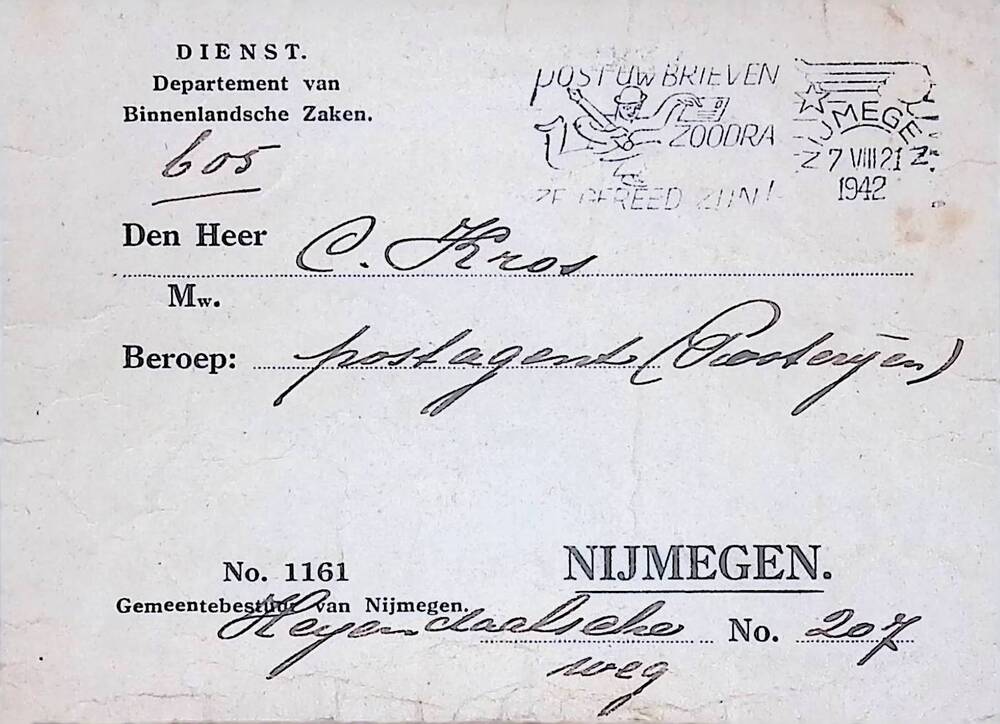 DIENST.
Departement van
Binnenlandsche Zaken.
605
POST UW BRIEVEN
ZOODRA
ZE GEREED ZIJN!
NIJMEGEN
7 VIII 21
1942
Den Heer C. Kros
Mw.
Beroep: postagent (Posterijen)
No. 1161
NIJMEGEN.
Gemeentebestuur van Nijmegen.
Heyendaalsche No. 207
weg